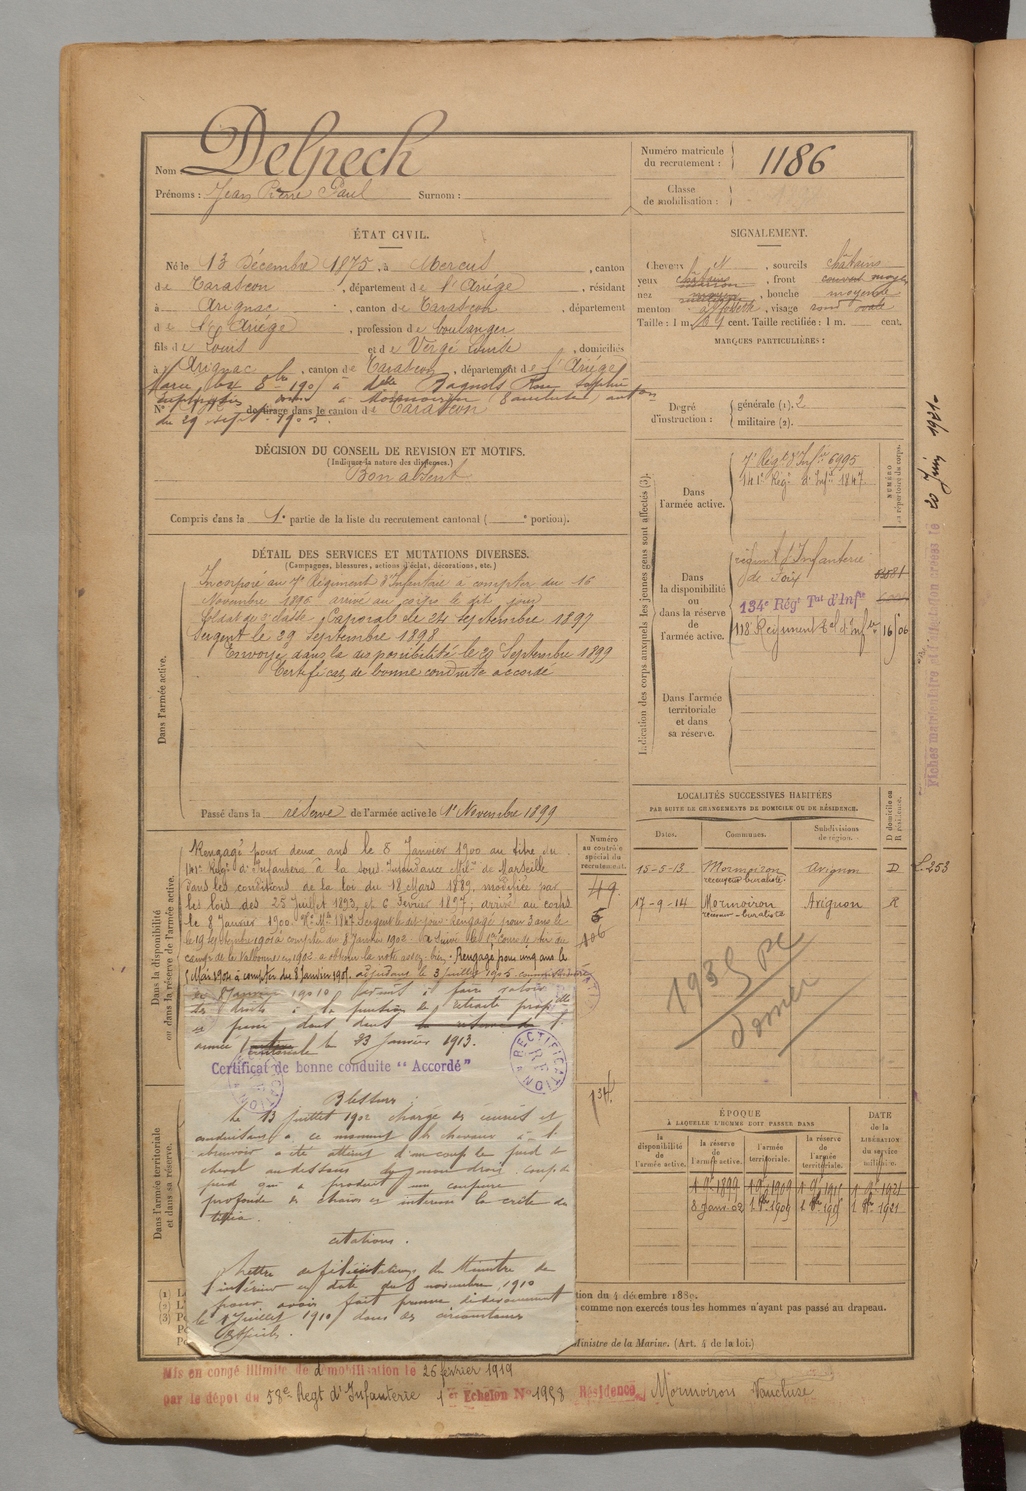 Nom Delpech
Prénoms : Jean Pierre Paul Surnom :
Numéro matricule
du recrutement : 1186
Classe
de mobilisation :
ÉTAT CIVIL.
Né le 13 Décembre 1875, à Mercus, canton
de Tarascon, département de l'Ariége, résidant
à Arignac, canton de Tarascon, département
de l'Ariége, profession de boulanger
fils de Louis et de Vergé Louise, domiciliés
à Arignac, canton de Tarascon, département de l'Ariége
Marié le 8bre 190 à Delle Rose Sophie
à Mormoiron (Vaucluse)
N° de tirage dans le canton de Tarascon
du 29 sept. 1905.
SIGNALEMENT.
Cheveux, sourcils châtains
yeux châtains, front moyen
nez, bouche moyenne
menton à fossette, visage ovale
Taille : 1 m. cent. Taille rectifiée : 1 m. cent.
MARQUES PARTICULIÈRES :
Degré
d'instruction :
générale (1). 2
militaire (2).
DÉCISION DU CONSEIL DE REVISION ET MOTIFS.
(Indiquer la nature des dispenses.)
Bon absent
Compris dans la 1e partie de la liste du recrutement cantonal ( e portion).
DÉTAIL DES SERVICES ET MUTATIONS DIVERSES.
(Campagnes, blessures, actions d'éclat, décorations, etc.)
Dans l'armée active.
Incorporé au 7e Régiment d'Infanterie à compter du 16
Novembre 1896 arrivé au corps le dit jour
Soldat de 2e classe. Caporal le 24 septembre 1897
Sergent le 29 Septembre 1898
Envoyé dans la disponibilité le 29 Septembre 1899
Certificat de bonne conduite accordé
Passé dans la réserve de l'armée active le 1er Novembre 1899
Indication des corps auxquels les jeunes gens sont affectés (3).
NUMÉRO
au répertoire du corps.
Dans
l'armée active.
7e Régt d'Infie 6995
141e Régt d'Infie 1847
Dans
la disponibilité
ou
dans la réserve
de
l'armée active.
Régiment d'Infanterie
de Foix
134e Régt Tal d'Infie
118e Régiment Tal d'Infie 16 06
Dans l'armée
territoriale
et dans
sa réserve.
Fiches matriculaire et adressées le 20 Juin 1921
Dans la disponibilité
ou dans la réserve de l'armée active.
Rengagé pour deux ans le 8 Janvier 1900 au titre du
141e Régt d'Infanterie à la sous Intendance Mre de Marseille
dans les conditions de la loi du 18 Mars 1889, modifiée par
les lois des 25 Juillet 1893, et 6 Février 1897; arrivé au corps
le 8 Janvier 1900. No Mle 1847 Sergent le dit jour. Rengagé pour 3 ans le
le 19 septembre 1901 à compter du 8 Janvier 1902. A suivi le cours de tir du
camp de la Valbonne en 1902 a obtenu la note assez-bien. Rengagé pour un an le
Mai 1904 à compter du 8 Janvier 1905. adjudant le 3 juillet 1905
Numéro
au contrôle
spécial du
recrutement.
49
6
106
134
le 8 Janvier 1910 admis à faire valoir
ses droits à la pension de retraite
et passe dans
armée territoriale le 23 Janvier 1913.
Certificat de bonne conduite "Accordé"
RECTIFICATION RF
Blessures :
Le 13 juillet 1902 chargé des écuries et
conduisant à ce moment les chevaux à l'
abreuvoir a été atteint d'un coup de pied de
cheval au dessous du genou droit. Coup de
pied qui a produit une coupure
profonde des chairs et intéressé la crête du
tibia.
Citations.
Lettre de félicitations du Ministre de
l'intérieur en date du 8 novembre 1910
pour avoir fait preuve de dévouement
le 1er juillet 1910 dans des circonstances
difficiles.
Dans l'armée territoriale
et dans sa réserve.
LOCALITÉS SUCCESSIVES HABITÉES
PAR SUITE DE CHANGEMENTS DE DOMICILE OU DE RÉSIDENCE.
Dates. Communes. Subdivisions
de région. D domicile ou
R résidence.
15-5-13 Mormoiron Avignon D L. 253
receveur buraliste.
17-9-14 Mormoiron Avignon R
receveur-buraliste
ÉPOQUE
À LAQUELLE L'HOMME DOIT PASSER DANS
la
disponibilité
de
l'armée active.
la réserve
de
l'armée active.
l'armée
territoriale.
la réserve
de
l'armée
territoriale.
DATE
de la
LIBÉRATION
du service
militaire.
1 9bre 1899 1 9bre 1909 1 9bre 1915 1 9bre 1921
8 Janv. 02 1 8bre 1909 1 8bre 1915 1 8bre 1921
(1)
(2)
(3)
tion du 4 décembre 1889.
comme non exercés tous les hommes n'ayant pas passé au drapeau.
Ministre de la Marine. (Art. 4 de la loi.)
Mis en congé illimité de démobilisation le 26 février 1919
par le dépôt du 58e Regt d'Infanterie 1er Echelon No 1958 Résidence Mormoiron Vaucluse